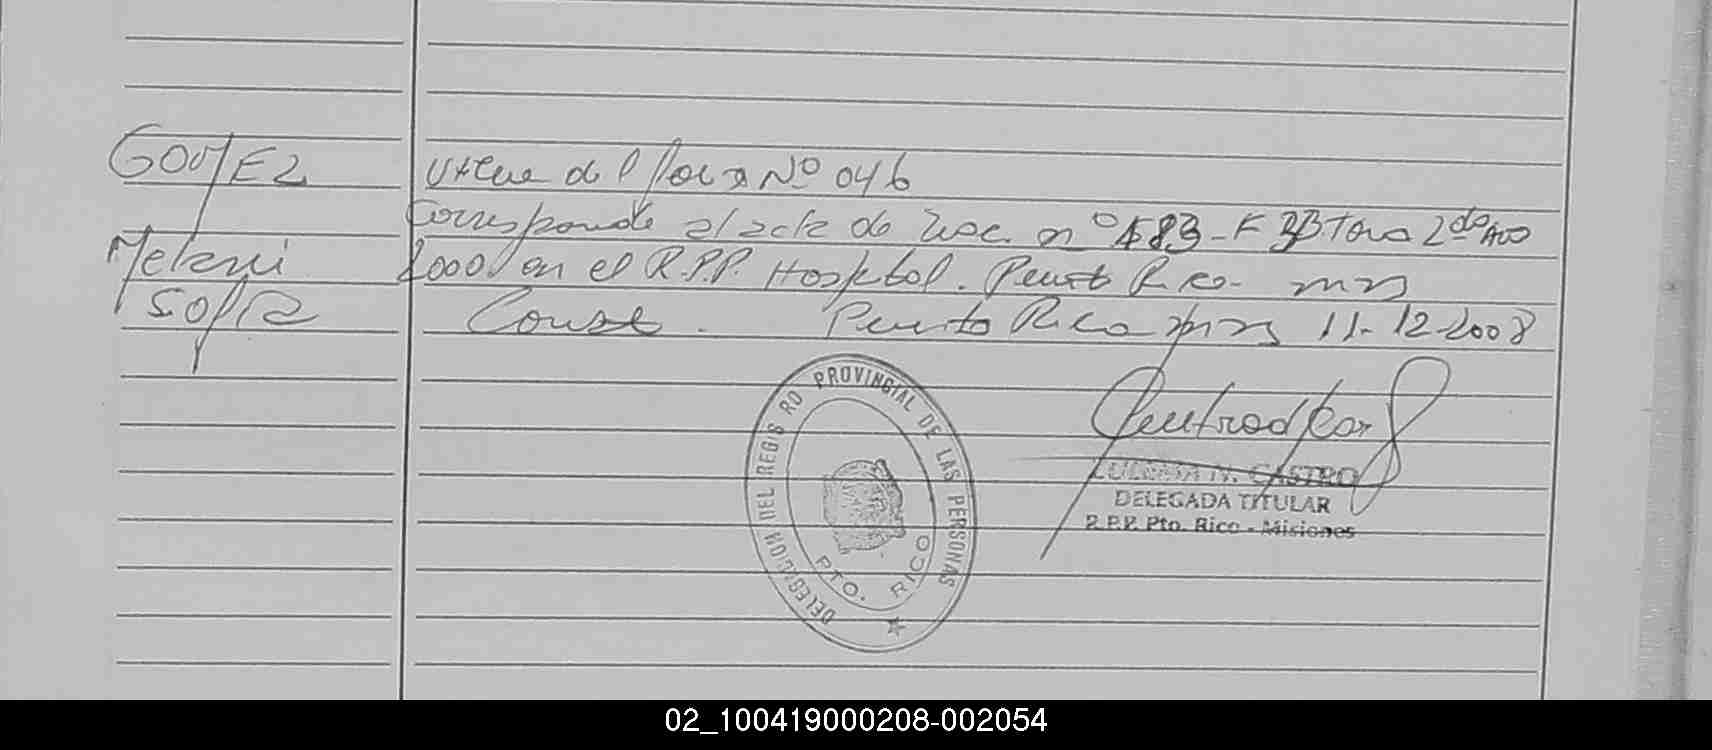 GOMEZ
Melani
Sofia
Viene del Folio Nº 046
Corresponde al acta de Nac. nº 183 - F 33 Tomo 2do Año
2000 en el R.P.P. Hospital. Puerto Rico - mns
Conste. Puerto Rico mns 11-12-2008
DELEGACION DEL REGISTRO PROVINCIAL DE LAS PERSONAS
PTO. RICO
N. CASTRO
DELEGADA TITULAR
R.P.P. Pto. Rico - Misiones
02_100419000208-002054